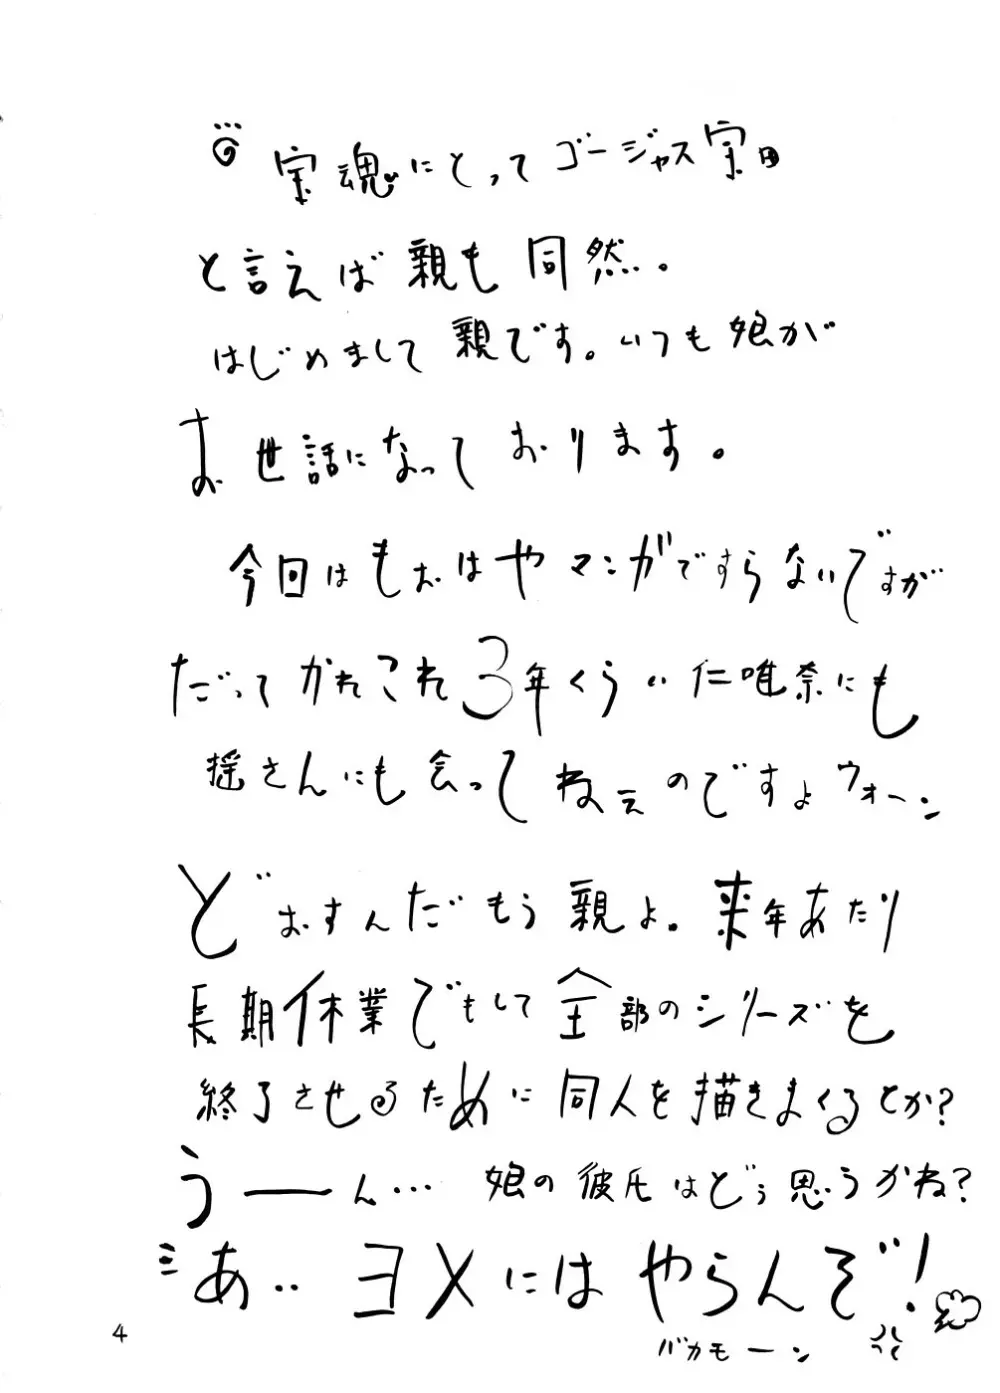 宝魂にとってゴージャス宝田
と言えば親も同然。
はじめまして親です。いつも娘が
お世話になっております。
今回はもおはやマンガですらないですが
だってかれこれ3年くらい仁唯奈にも
揺さんにも会ってねえのですよウォーン
どおすんだもう親よ。来年あたり
長期休業でもして全部のシリーズを
終了させるために同人を描きまくるとか?
うーん… 娘の彼氏はどぅ思うかね?
あ‥ヨメにはやらんぞ!
バカモーン
4